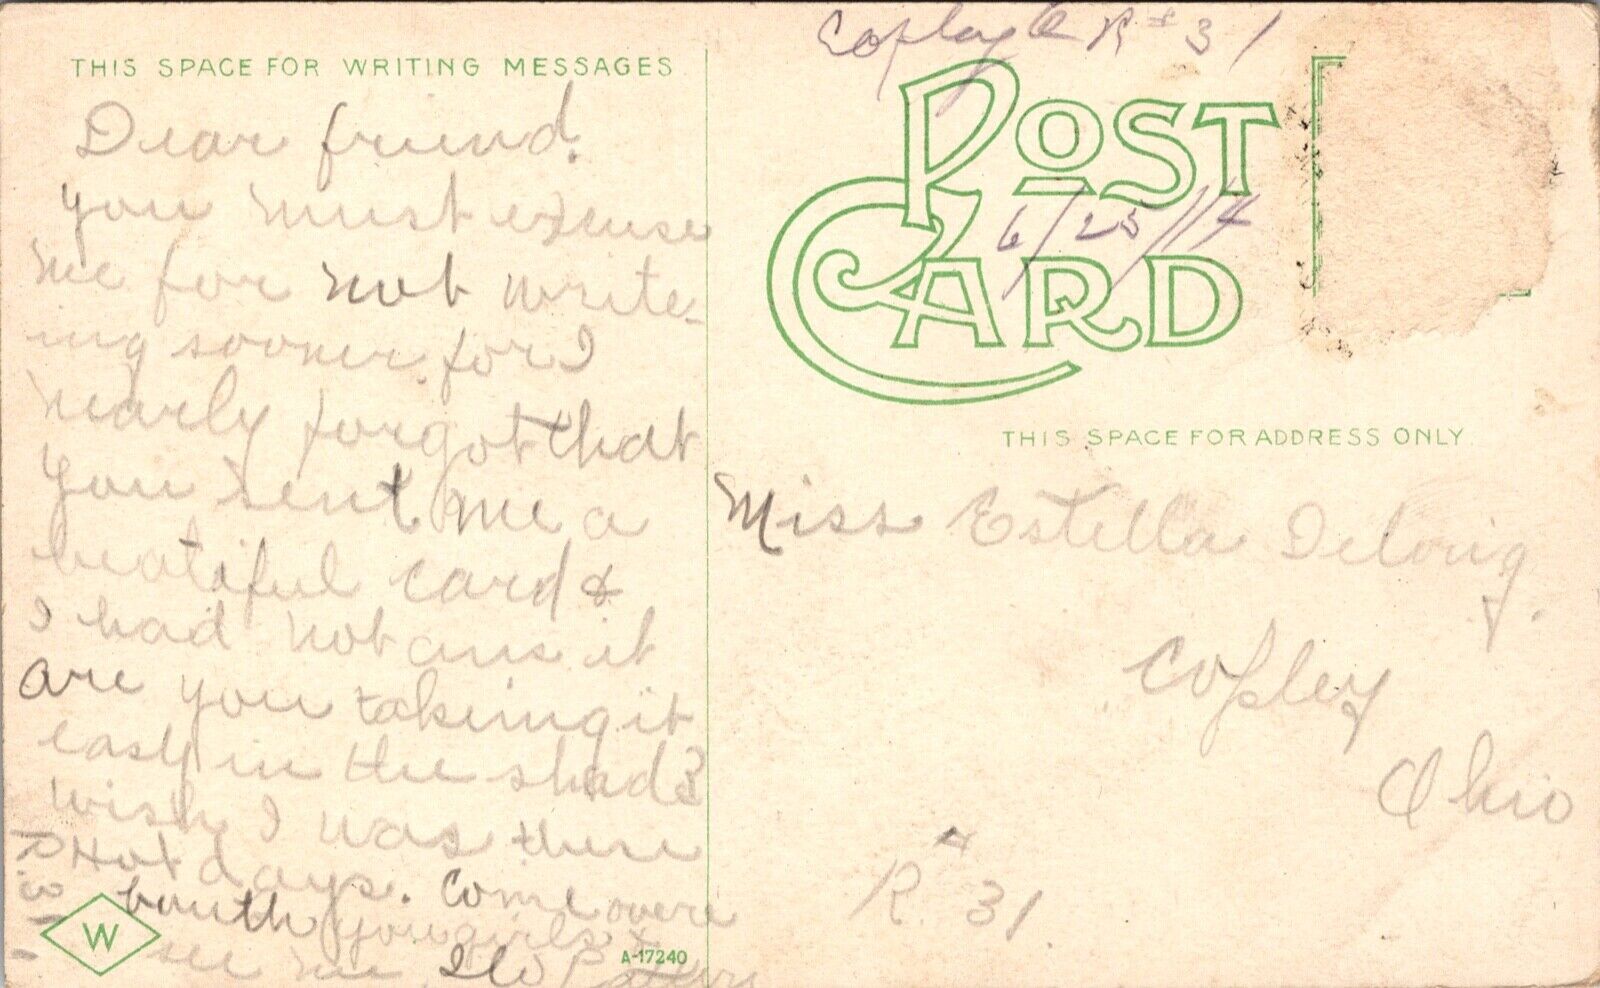 THIS SPACE FOR WRITING MESSAGES
Dear friend.
you must excuse
me for not write-
ing sooner. for I
nearly forgot that
you sent me a
beatiful card &
I had not ans it
are you takeing it
easy in the shade
wish I was there
Hot days. Come overe
bouth you girls &
see me
R. 31
W
A-17240
Copley O R # 31
POST CARD
6/25/14
THIS SPACE FOR ADDRESS ONLY
Miss Estella Delong.
Copley
Ohio
R. # 31.